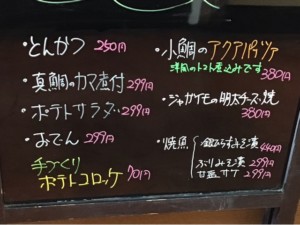 ・とんかつ 250円
・真鯛のカマ煮付 299円
・ポテトサラダ 299円
・おでん 299円
手づくり
ポテトコロッケ 70円
・小鯛のアクアパッツァ
洋風のトマト煮込みです 380円
・ジャガイモの明太チーズ焼
380円
・焼魚
銀ムツみそ漬 440円
ぶりみそ漬 299円
甘塩サケ 299円